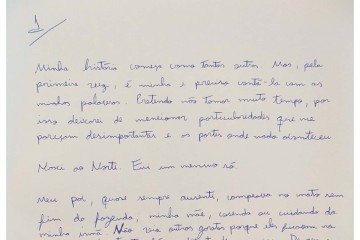 1
Minha história começa como tantas outras. Mas, pela
primeira vez, é minha e preciso contá-la com as
minhas palavras. Pretendo não tomar muito tempo, por
isso deixarei de mencionar particularidades que me
pareçam desimportantes e as partes onde nada aconteceu.
Nasci ao Norte. Era um menino só.
Meu pai, quase sempre ausente, campeava no mato sem
fim da fazenda, minha mãe, cosendo ou cuidando da
minha irmã. Não via outros garotos porque eles ficavam na